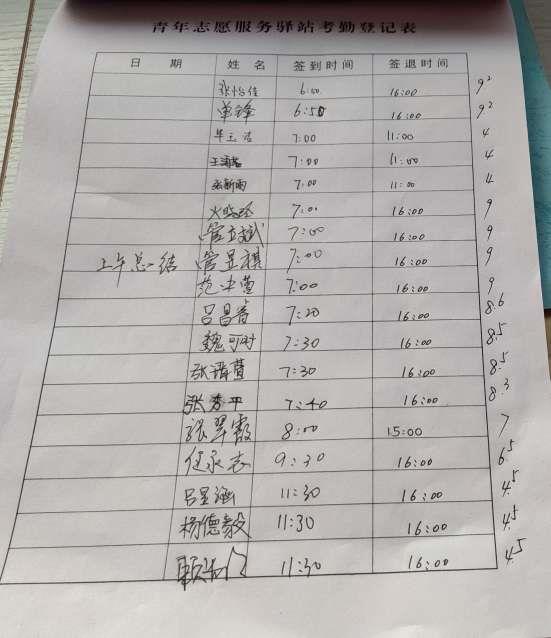 青年志愿服务驿站考勤登记表
日 期 姓 名 签到时间 签退时间
张怡佳 6:50 16:00 9.2
单锋 6:50 16:00 9.2
7:00 11:00 4
7:00 11:00 4
张新雨 7:00 11:00 4
7:00 16:00 9
管立斌 7:00 16:00 9
上午总结 管昱祺 7:00 16:00 9
范中萱 7:00 16:00 9
吕昌睿 7:20 16:00 8.6
魏可时 7:30 16:00 8.5
张清萱 7:30 16:00 8.5
张秀平 7:40 16:00 8.3
张翠霞 8:00 15:00 7
任永志 9:30 16:00 6.5
吕昱涵 11:30 16:00 4.5
杨德毅 11:30 16:00 4.5
11:30 16:00 4.5